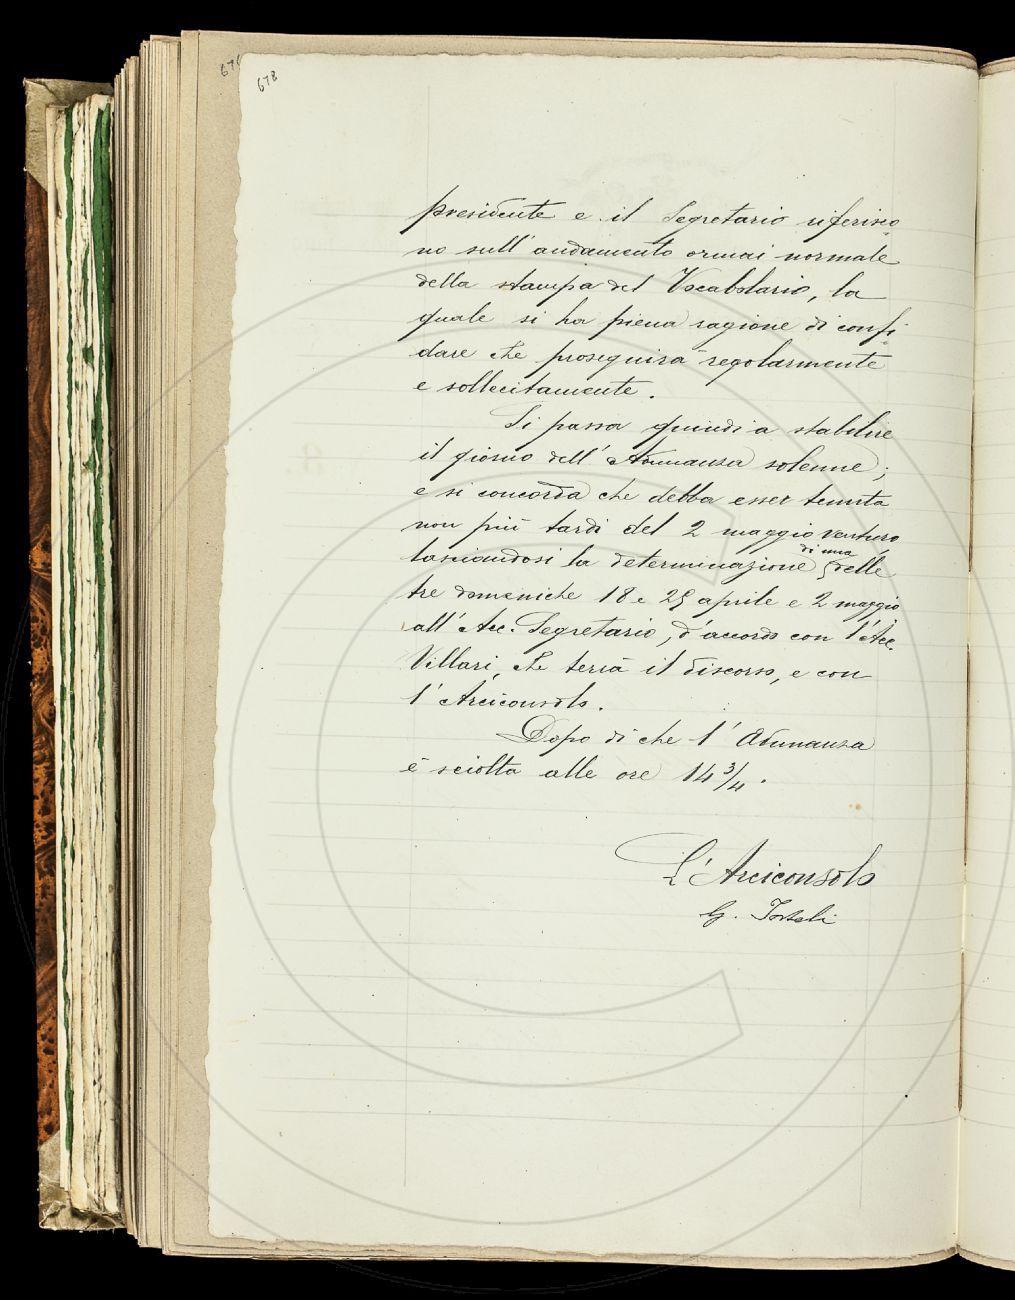 676
678
presidente e il Segretario riferisco
no sull'andamento ormai normale
della stampa del Vocabolario, la
quale si ha piena ragione di confi
dare che proseguirà regolarmente
e sollecitamente.
Si passa quindi a stabilire
il giorno dell'Adunanza solenne;
e si concorda che debba esser tenuta
non più tardi del 2 maggio venturo
di una
lasciandosi la determinazione delle
tre domeniche 18 e 25 aprile e 2 maggio
all'Acc. Segretario, d'accordo con l'Acc.
Villari, che terrà il discorso, e con
l'Arciconsolo.
Dopo di che l'Adunanza
è sciolta alle ore 14 3/4.
L'Arciconsolo
G. Tortoli